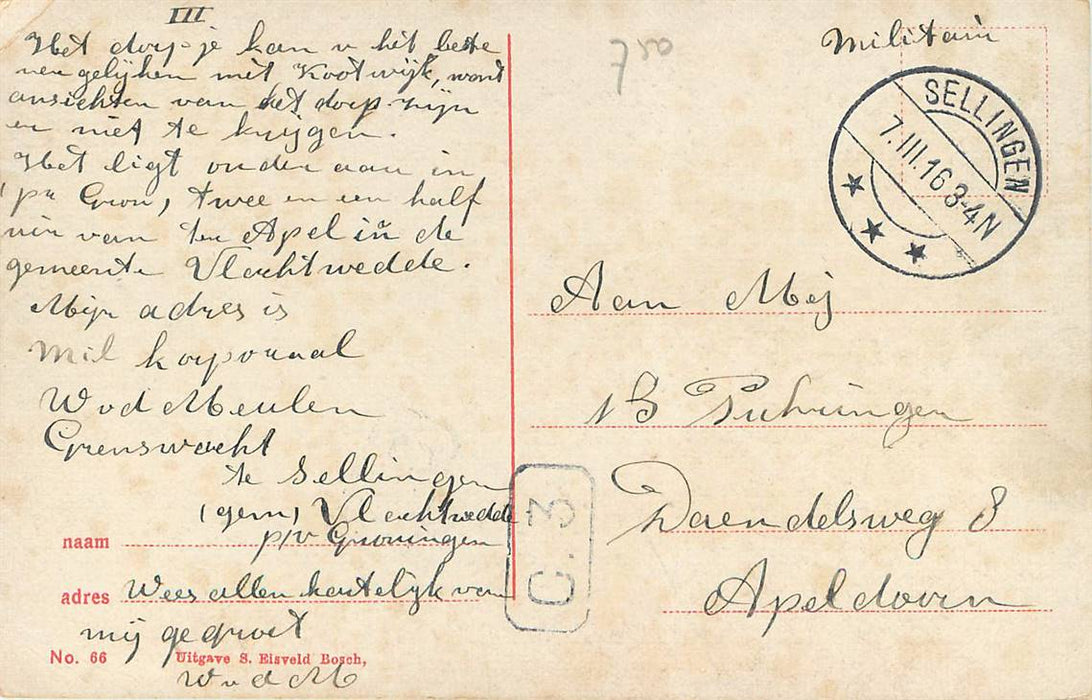 III
Het dorpje kan u het beste
vergelijken met Kootwijk, want
ansichten van het dorp zijn
er niet te krijgen.
Het ligt onder aan in
pr Gron, twee en een half
uur van ter Apel in de
gemeente Vlachtwedde.
Mijn adres is
Mil korporaal
W v d Meulen
Grenswacht
te Sellingen
(gem) Vlachtwedde
p/v Groningen
naam
adres Wees allen hartelijk van
mij gegroet
No. 66 Uitgave S. Eisveld Bosch,
W v d M
750
Militair
SELLINGEN
7.III.16 3-4N
Aan Mej
Daendelsweg 8
Apeldoorn
C. 3